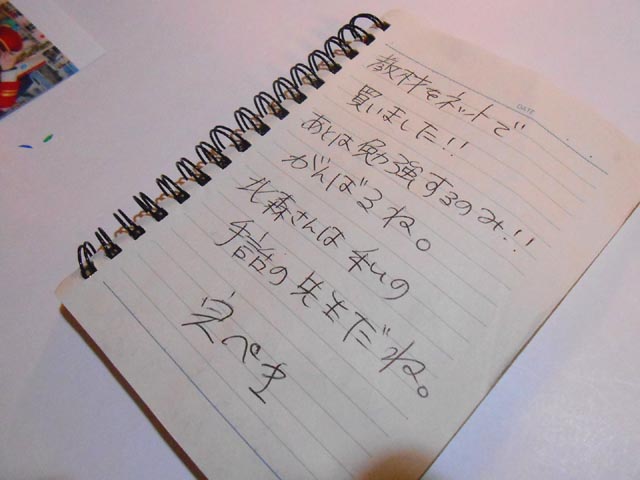 DATE
教材をネットで
買いました!!
あとは勉強するのみ!!
がんばるね。
北森さんは私の
手話の先生だね。